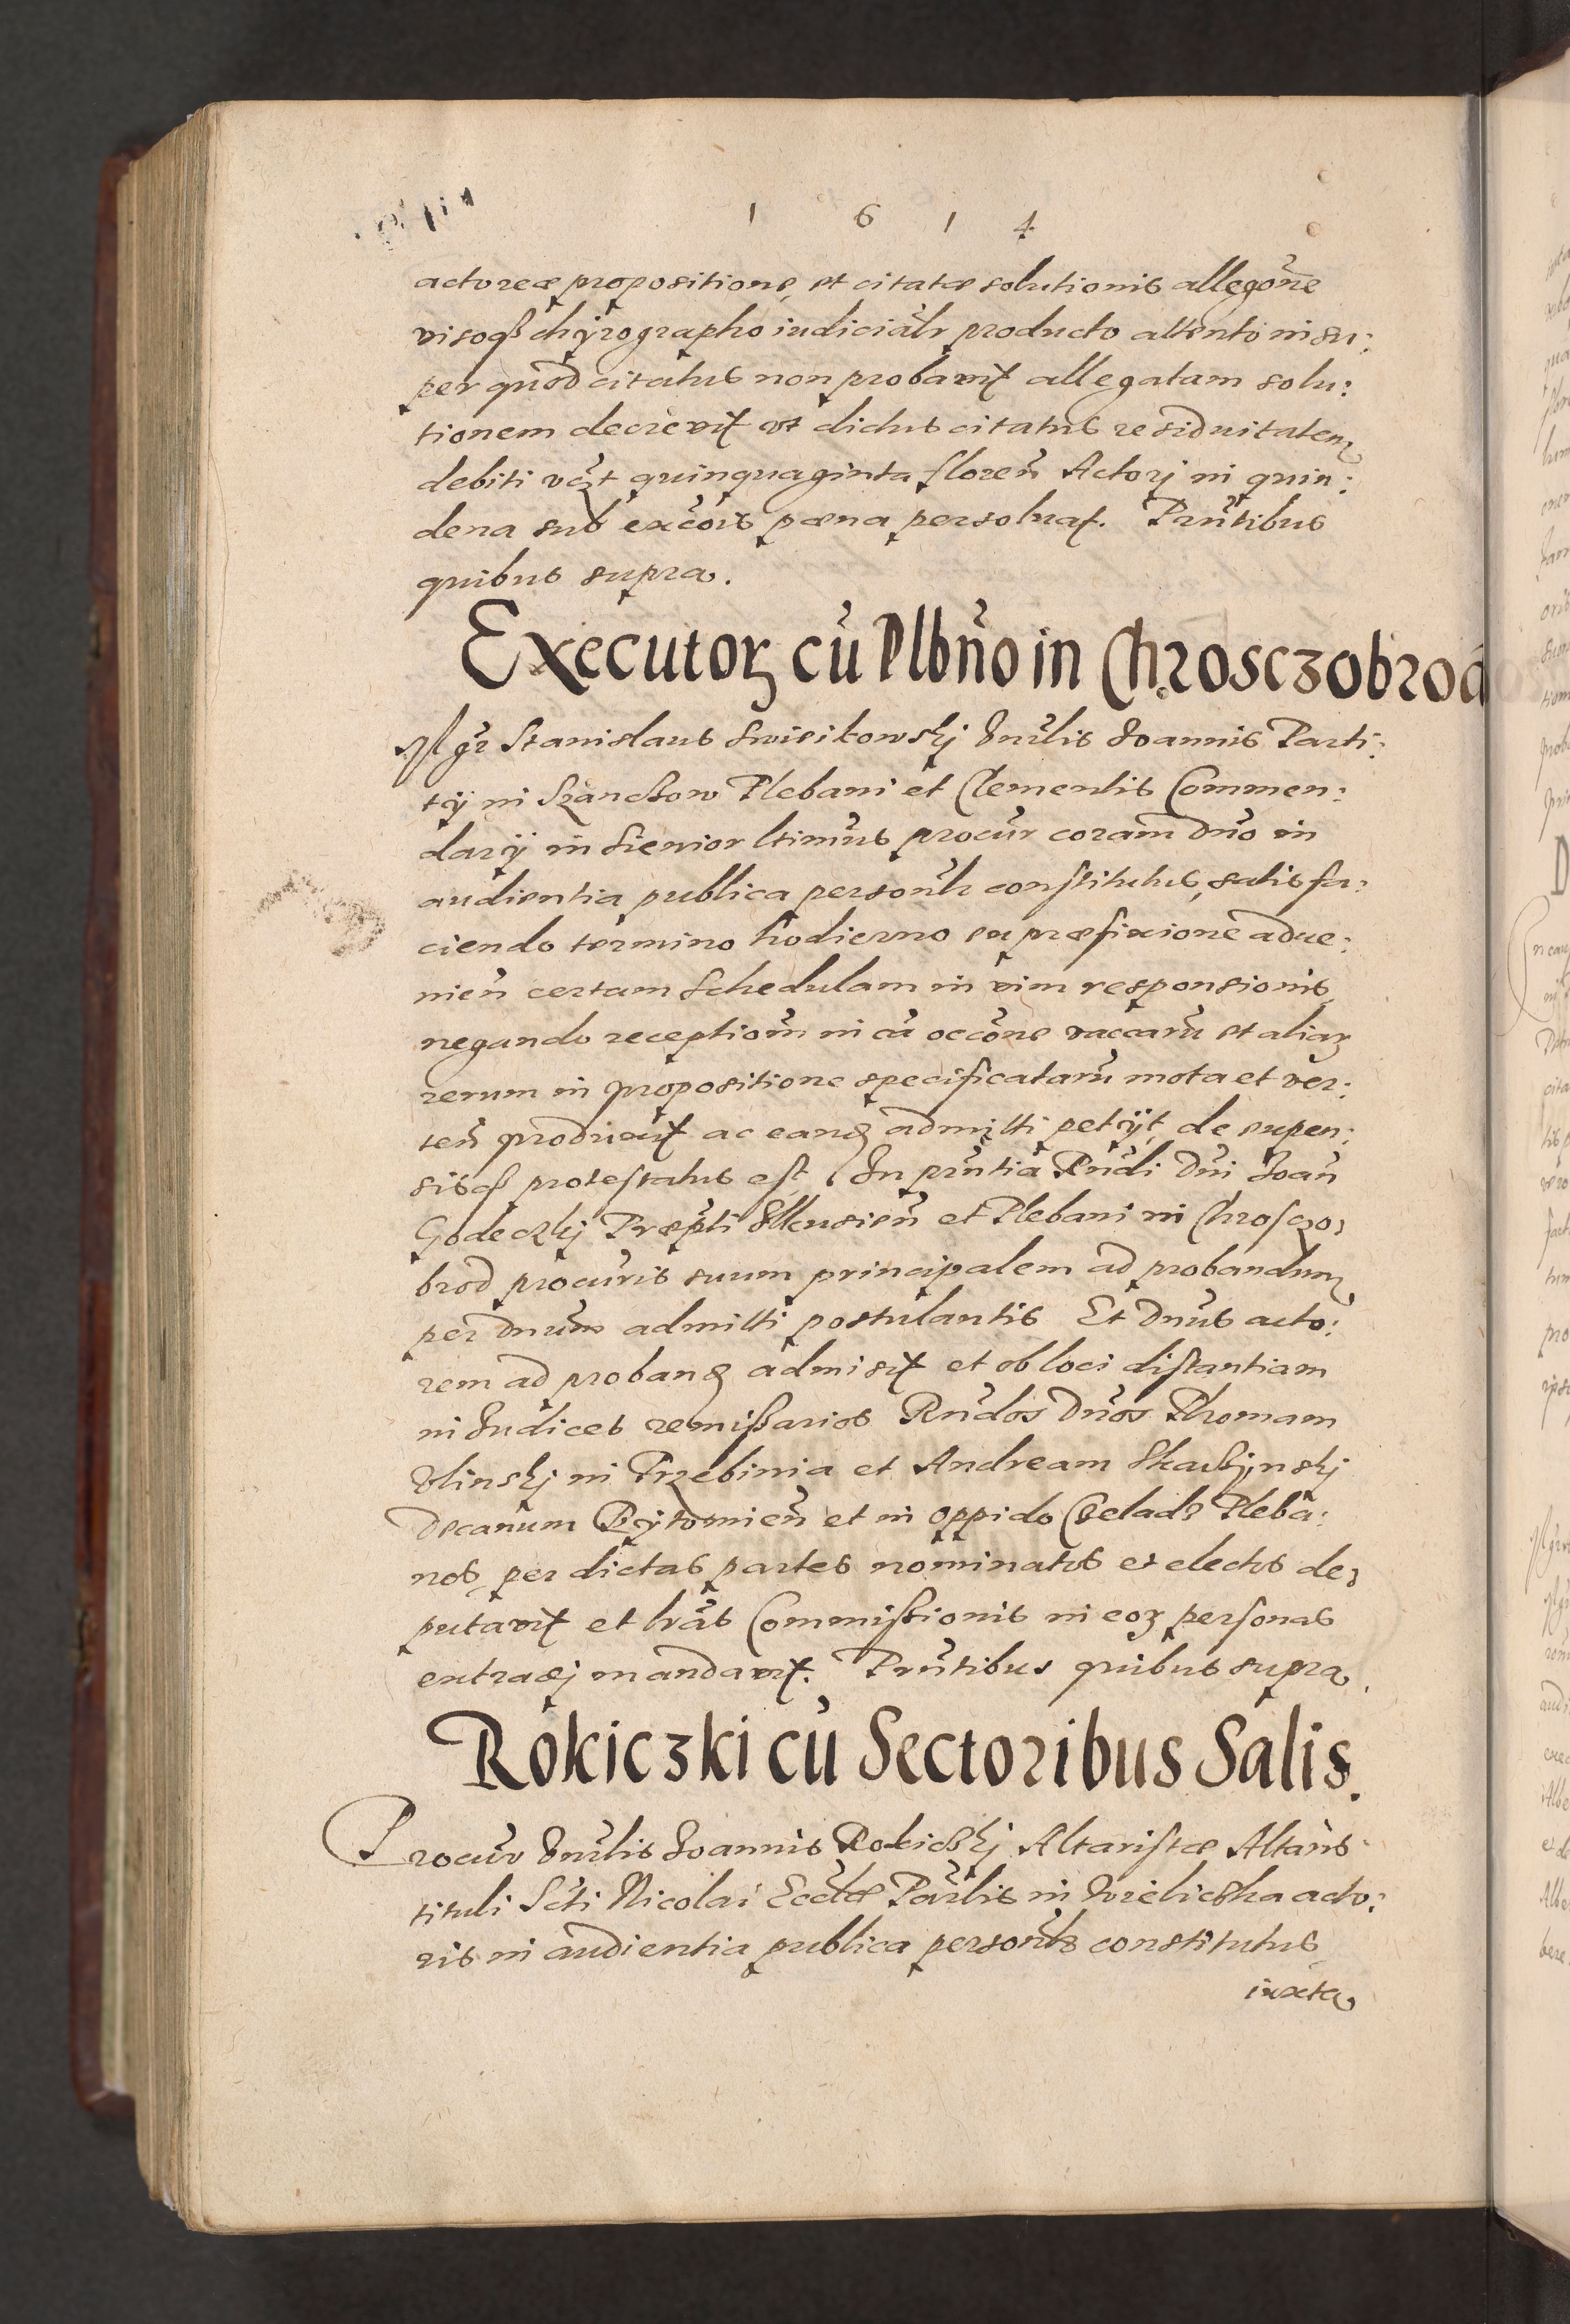 1 6 1 4
actoreæ propositione, et citatæ solutionis allegõne
visoqȝ chyrographo iudicialr producto attento insu:
per quod citatus non probavit allegatam solu:
tionem decrevit vt dictus citatus residuitatem
debiti vczt quinquaginta floren̄ Actorj in quin:
dena sub excōis pœna persoluat. Prn̄tibus
quibus supra.
Executoꝝ cū Plbño in Chrosczobrod
Mgr Stanislaus Swieikowskj Hnrlis Joannis Parti:
tij in Szanczow Plebani et Clementis Commen:
darij in Siewior ltimus procur coram Dno in
audientia publica personlr constitutus, satisfa:
ciendo termino hodierno ex præfixione adue:
nien̄ certam Schedulam in vim responsionis
negando receptiom̄ in cā occōne vaccarū et aliaꝝ
rerum in propositione specificatarū mota et ver:
ten̄ produxit ac eandȝ admitti petijt, de expen:
sisqȝ protestatus est. In prn̄tia Rndi Dni Joan̄
Godeczkj Præpti Ilkusien̄ et Plebani in Chrosczo:
brod procuris suum principalem ad probandum
per Dnum admitti postulantis Et Dnus acto:
rem ad probandȝ admisit et ob loci distantiam
in Judices remissarios Rndos Dnos Thomam
Vlinskj in Trzebinia et Andream Skarbijnskj
Decanum Bijtomien̄ et in oppido Czeladz Pleba:
nos, per dictas partes nominatos et electos de:
putavit et lrās Commissionis in eoꝝ personas
extradj mandavit. Prn̄tibus quibus supra.
Rokiczki cū Sectoribus Salis.
Procur Hnrlis Joannis Rokiczkj Altaristæ Altaris
tituli Scti Nicolai Eccłæ Parlis in Wieliczka acto:
ris in audientia publica personlr constitutus
iuxta